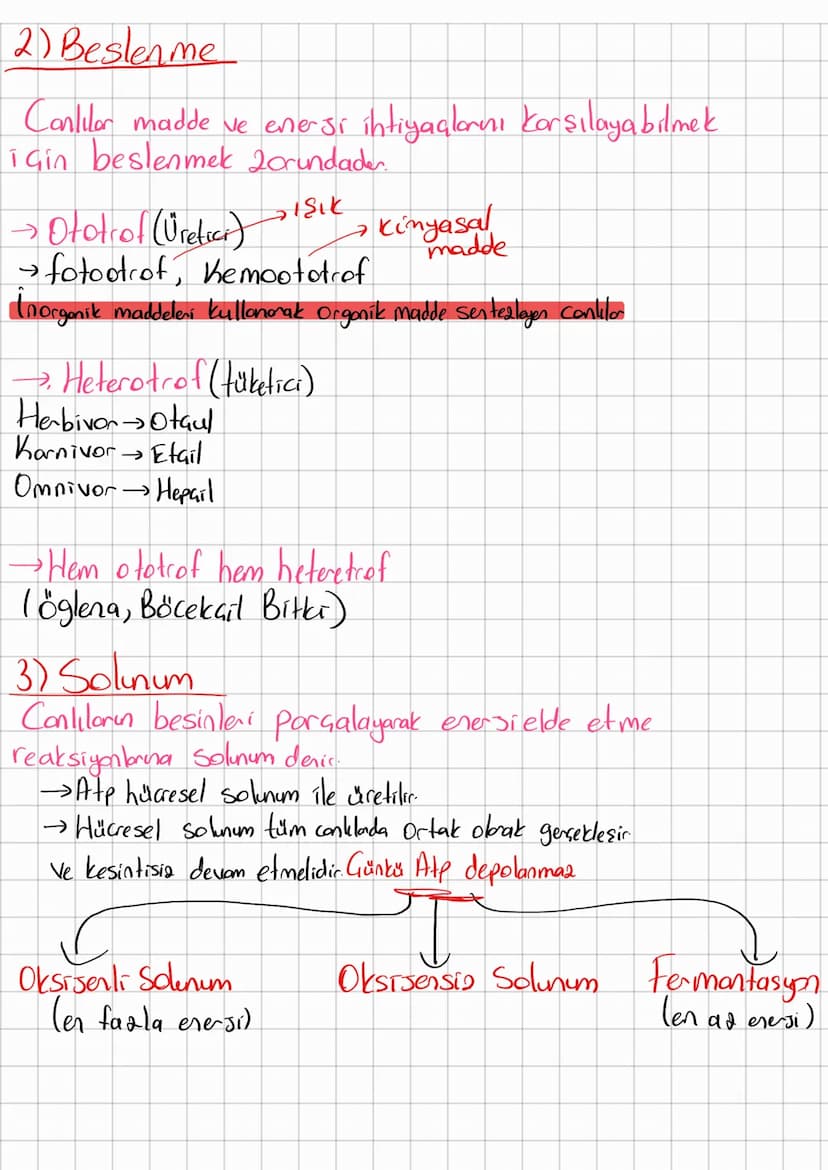 2) Beslenme
Canlılar madde ve enerji ihtiyaçlarını karşılayabilmek
için beslenmek zorundadır.
→ Ototrof (Üretici) → ışık
→ kimyasal madde
→ fotootrof, Kemoototrof
İnorganik maddeleri kullanarak organik madde sentezleyen canlılar
→ Heterotrof (tüketici)
Herbivor → Otçul
Karnivor → Etçil
Omnivor → Hepçil
→ Hem ototrof hem heteretrof
(Öglena, Böcekçil Bitki)
3) Solunum
Canlıların besinleri parçalayarak enerji elde etme
reaksiyonlarına solunum denir.
→ Atp hücresel solunum ile üretilir.
→ Hücresel solunum tüm canlılada ortak olarak gerçekleşir
ve kesintisiz devam etmelidir. Çünkü Atp depolanmaz
Oksijenli Solunum Oksijensiz Solunum Fermantasyon
(en fazla enerji) (en az enerji)